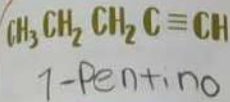 CH₃ CH₂ CH₂ C ≡ CH
1-Pentino